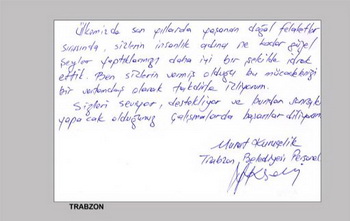 Ülkemizde son yıllarda yaşanan doğal felaketler
sırasında, sizlerin insanlık adına ne kadar güzel
şeyler yaptığınızı daha iyi bir şekilde idrak
ettik. Ben sizlerin vermiş olduğu bu mücadeleyi
bir vatandaş olarak takdirle izliyorum.
Sizleri seviyor, destekliyor ve bundan sonraki
yapacak olduğunuz çalışmalarda başarılar diliyorum
Murat
Trabzon Belediyesi Personeli
TRABZON